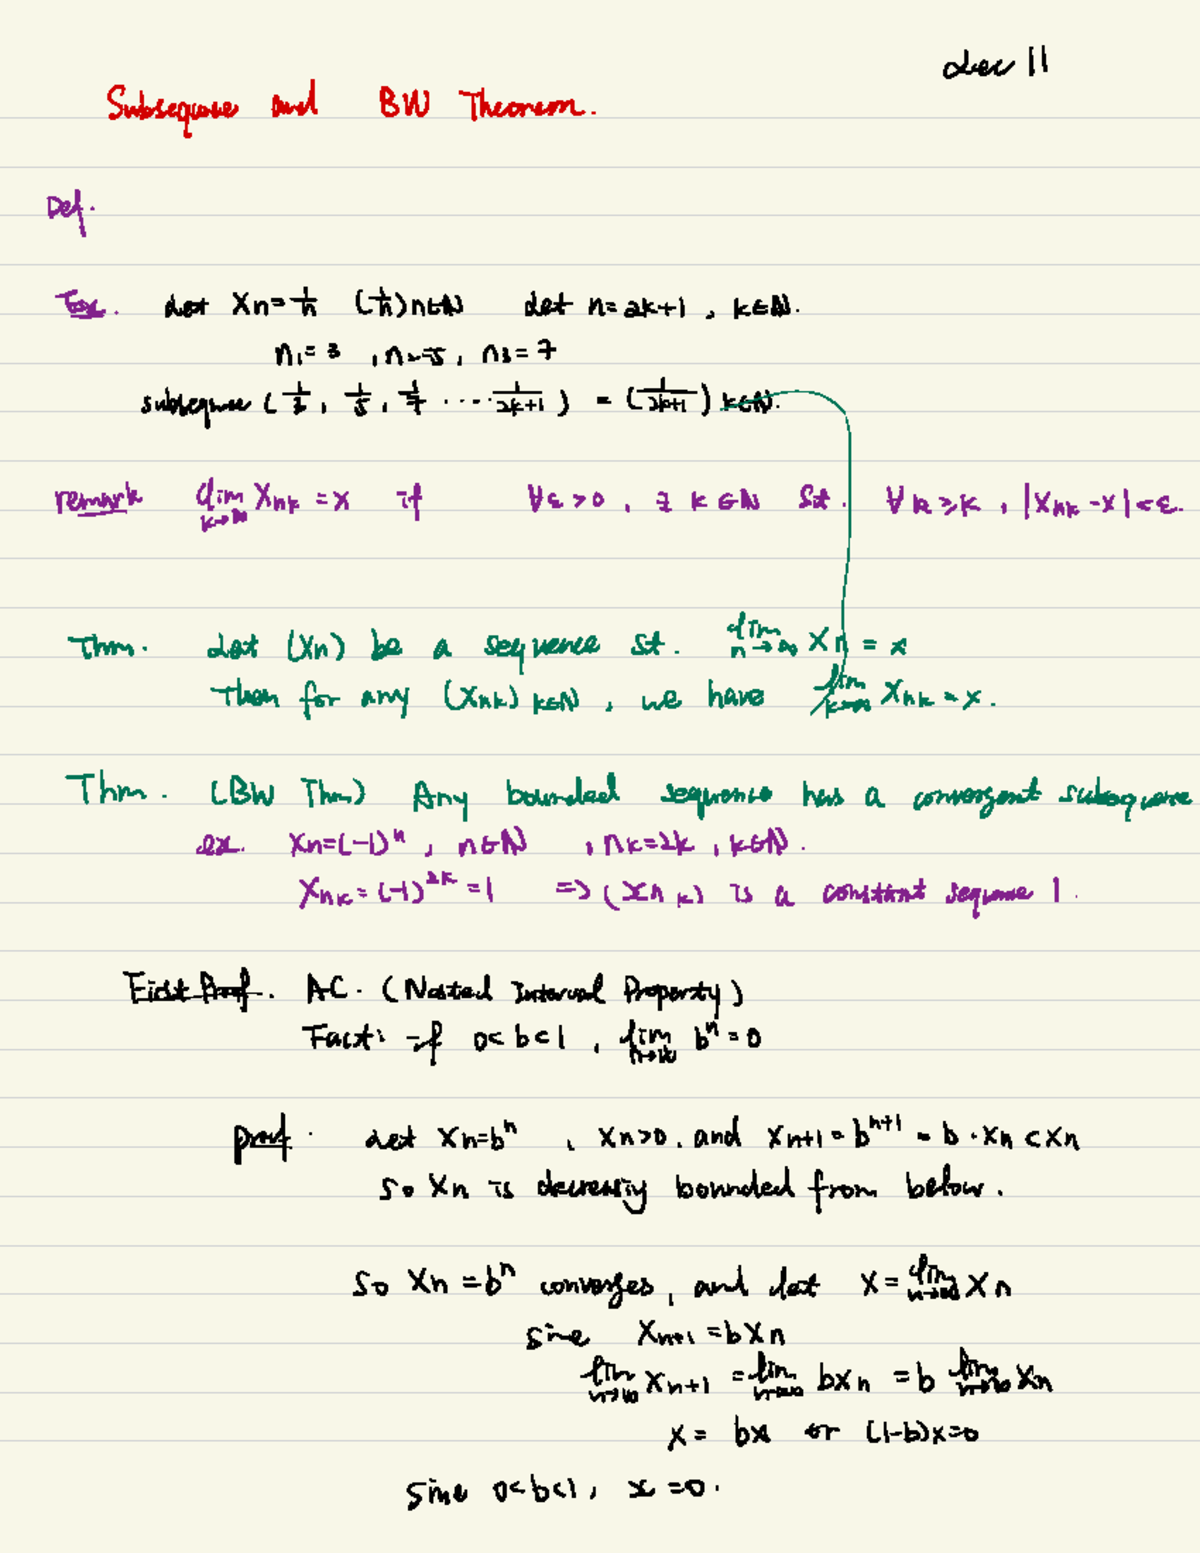 Lec 11
Subsequence and BW Theorem.
Def.
Ex. Let Xn = 1/n (1/n) n∈N Let n = 2k+1, k∈N.
n₁ = 3, n₂ = 5, n₃ = 7
subsequence (1/3, 1/5, 1/7 ... 1/2k+1) = (1/2k+1) k∈N.
remark lim k→∞ Xnk = x if ∀ε>0, ∃ K∈N St. ∀k≥K, |Xnk - x| < ε.
Thm. Let (Xn) be a sequence St. lim n→∞ Xn = x
Then for any (Xnk) k∈N, we have lim k→∞ Xnk = x.
Thm. (BW Thm) Any bounded sequence has a convergent subsequence
ex. Xn = (-1)ⁿ, n∈N, nk = 2k, k∈N.
Xnk = (-1)²ᵏ = 1 => (xnk) is a constant sequence 1.
First Proof. AC. (Nested Interval Property)
Fact: If 0<b<1, lim n→∞ bⁿ = 0
proof. Let Xn = bⁿ, Xn>0, and Xn+1 = bⁿ⁺¹ = b·Xn < Xn
So Xn is decreasing bounded from below.
So Xn = bⁿ converges, and let X = lim n→∞ Xn
Sine Xn+1 = bXn
lim n→∞ Xn+1 = lim n→∞ bXn = b lim n→∞ Xn
X = bx or (1-b)x = 0
Sine 0<b<1, x = 0.